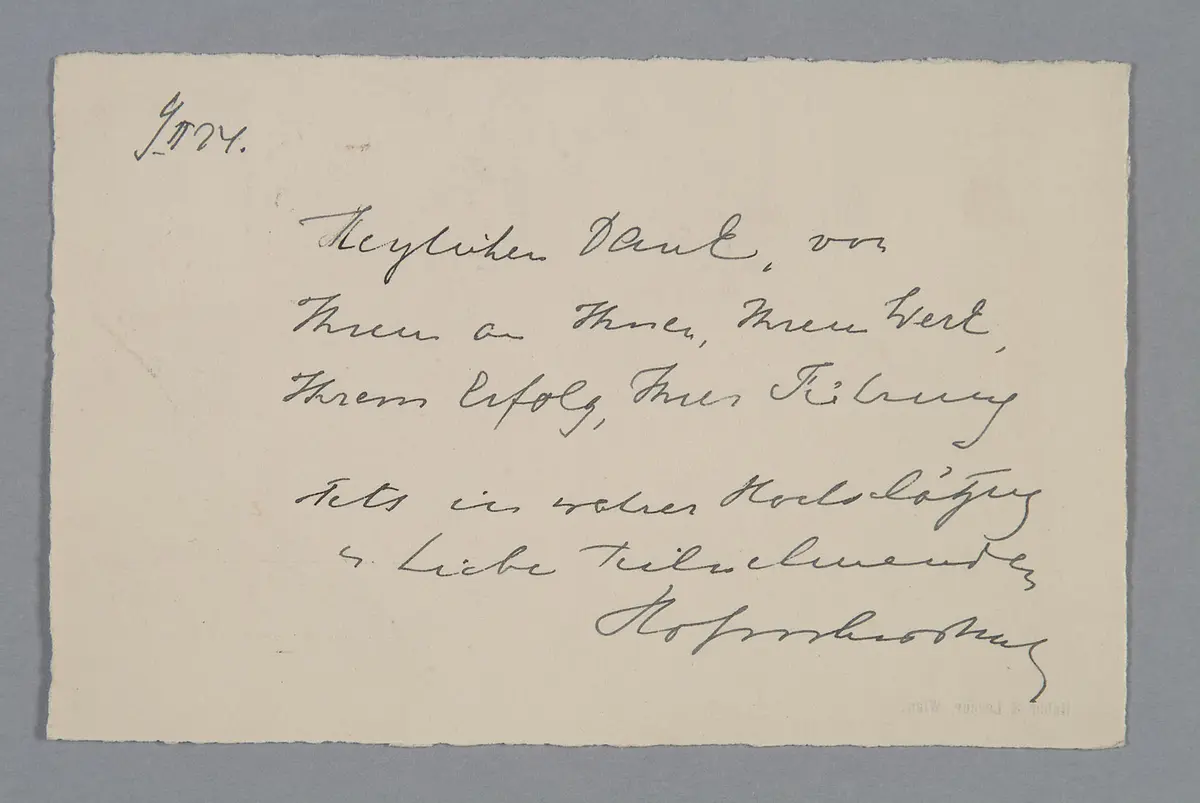 9 II 24.
Herzlichen Dank, von
Ihrem an Ihnen, Ihrem Werk,
Ihrem Erfolg, Ihrer Führung
stets in wahrer Hochschätzung
u. Liebe Teilnehmenden
Hofmannsthal